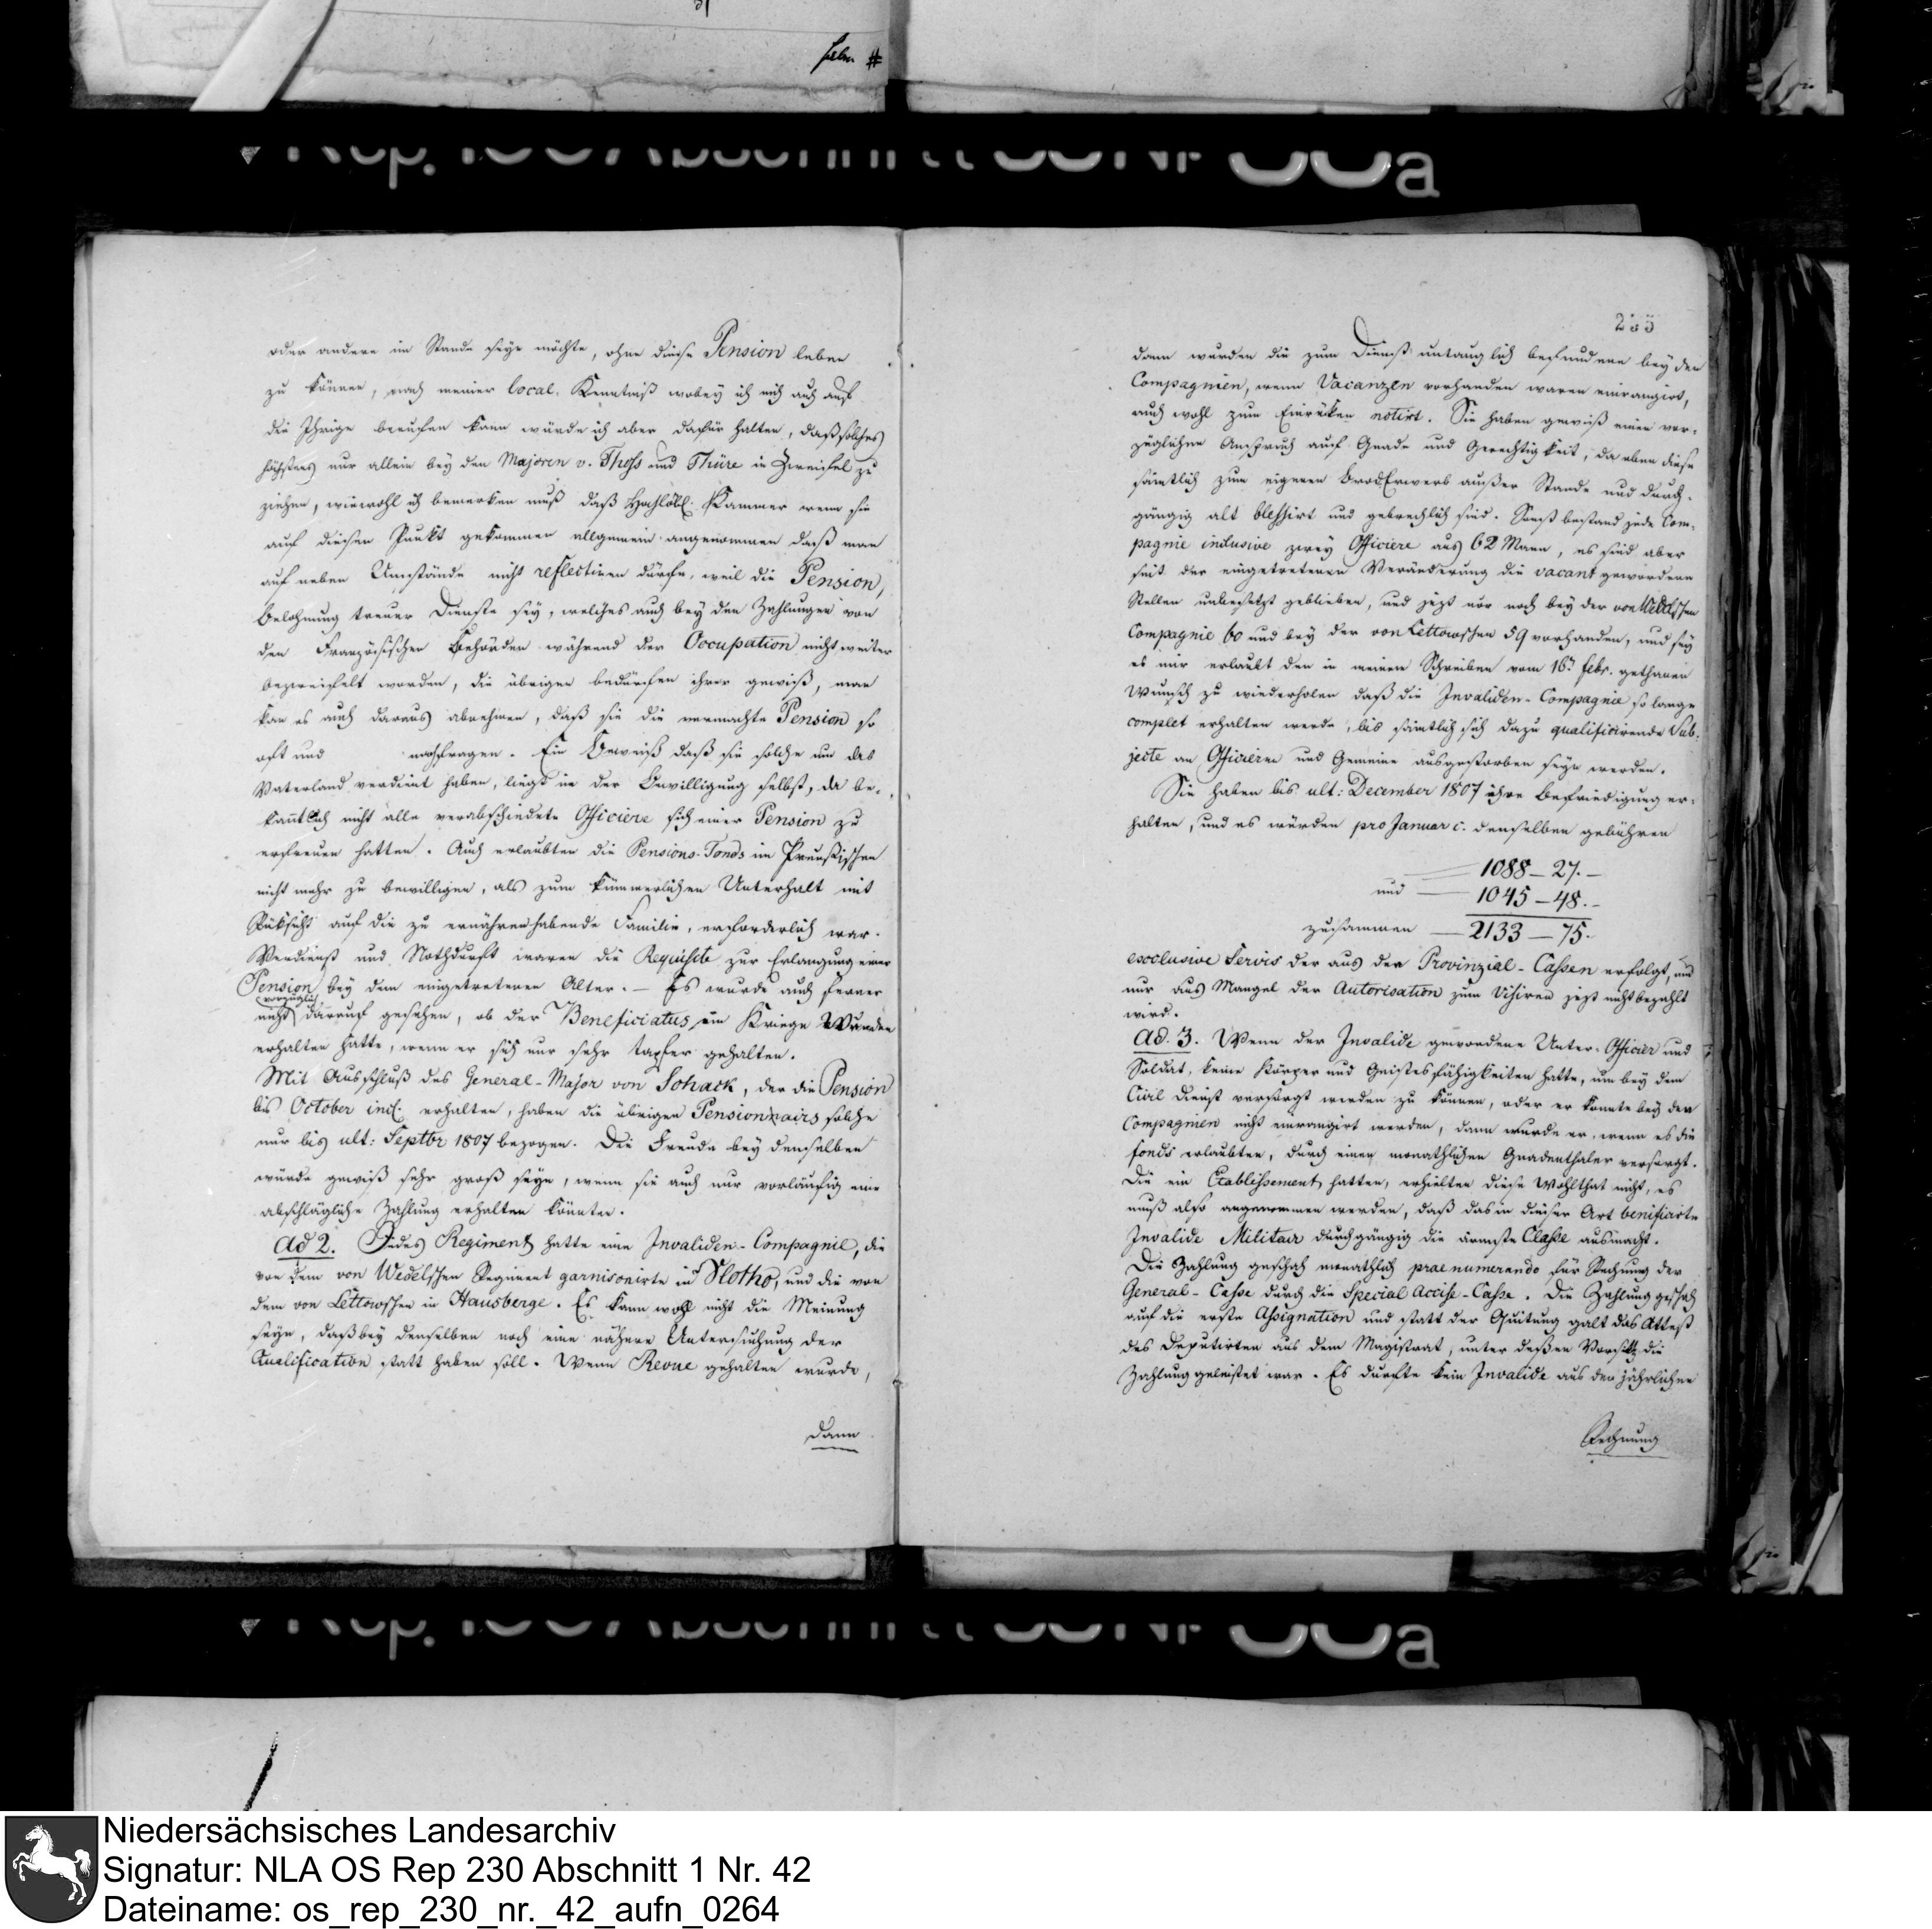 oder andere im Stande seyn möchte, ohne diese Pension leben
zu können, nach meiner local. Kenntniß wobey ich mich auch auf
die Ihrige berufen kann würde ich aber dafür halten, daß solches
höchstens nur allein bey den Majoren v. Thoss und Thüre in Zweifel zu
ziehen, wiewohl ich bemerken muß daß Hochlöbl. Kammer wenn sie
auf diesen Punkt gekommen allgemein angenommen daß man
auf neben Umstände nicht reflectiren dürfe, weil die Pension,
Belohnung treuer Dienste sey, welches auch bey den Zahlungen von
den Französischen Behörden während der Occupation nicht weiter
bezweifelt worden, die übrigen bedürfen ihrer gewiß, man
kan es auch daraus abnehmen, daß sie die vermachte Pension so
oft und nachfragen. Ein Beweiß daß sie solche um das
Vaterland verdient haben, liegt in der Bewilligung selbst, da be-
kanntlich nicht alle verabschiedete Officiere sich einer Pension zu
erfreuen hatten. Auch erlaubten die Pensions-Fonds im Preußischen
nicht mehr zu bewilligen, als zum kümmerlichen Unterhalt mit
Rüksicht auf die zu ernähren habende Familie, erforderlich war.
Verdienst und Nothdurft waren die Requisite zur Erlangung einer
Pension bey dem eingetretenen Alter. — Es wurde auch ferner
vorzüglich
nicht darauf gesehen, ob der Beneficiatus im Kriege Wunden
erhalten hatte, wenn er sich nur sehr tapfer gehalten.
Mit Ausschluß des General-Major von Schack, der die Pension
bis October incl. erhalten, haben die übrigen Pensionairs solche
nur bis ult: Septbr 1807 bezogen. Die Freude bey denselben
würde gewiß sehr groß seyn, wenn sie auch nur vorläufig eine
abschlägliche Zahlung erhalten könnten.
Ad 2. Jedes Regiment hatte eine Invaliden-Compagnie, die
von dem von Wedelschen Regiment garnisonirte in Vlotho, und die von
dem von Lettowschen in Hausberge. Es kann wohl nicht die Meinung
seyn, daß bey denselben noch eine nähere Untersuchung der
Qualification statt haben soll. Wenn Revue gehalten wurde,
dann
dann wurden die zum Dienst untauglich befundenen bey den
Compagnien, wenn Vacanzen vorhanden waren einrangirt,
auch wohl zum Einrüken notirt. Sie haben gewiß einen vor-
züglichen Anspruch auf Gnade und Gerechtigkeit, da eben diese
sämtlich zum eigenen BrodErwerb außer Stande und durch-
gängig alt blessirt und gebrechlich sind. Sonst bestand jede Com-
pagnie inclusive zwey Officiere aus 62 Mann, es sind aber
seit der eingetretenen Veränderung die vacant gewordene
Stellen unbesetzt geblieben, und jezt nur noch bey der von Wedelschen
Compagnie 60 und bey der von Lettowschen 59 vorhanden, und sey
es mir erlaubt den in meinem Schreiben vom 16n febr. gethanen
Wunsch zu wiederholen daß die Invaliden-Compagnie so lange
complet erhalten werde, bis sämtlich sich dazu qualificirende Sub-
jecte an Officieren und Gemeine ausgestorben seyn werden.
Sie haben bis ult: December 1807 ihre Befriedigung er-
halten, und es würden pro Januar c. denselben gebühren
1088 — 27. —
und 1045 — 48. —
zusammen — 2133 — 75.
exclusive Servis der aus den Provinzial-Cassen erfolgt, und
nur aus Mangel der Autorisation zum Visiren jezt nicht bezahlt
wird.
Ad. 3. Wenn der Invalide gewordene Unter-Officier und
Soldat, keine Körper und Geistesfähigkeiten hatte, um bey dem
Civil Dienst versorgt werden zu können, oder er konnte bey den
Compagnien nicht einrangirt werden, dann wurde er, wenn es die
fonds erlaubten, durch einen monathlichen Gnadenthaler versorgt.
Die ein Etablissement hatten, erhielten diese Wohlthat nicht, es
muß also angenommen werden, daß das in dieser Art benificirte
Invalide Militair durchgängig die ärmste Classe ausmacht.
Die Zahlung geschah monathlich praenumerando für Rechnung der
General-Casse durch die Special Accise-Casse. Die Zahlung geschah
auf die erste Assignation und statt der Quitung galt das Attest
des Deputirten aus dem Magistrat, unter deßen Vorsitz die
Zahlung geleistet war. Es durfte kein Invalide aus den jährlichen
Rechnung
Niedersächsisches Landesarchiv
Signatur: NLA OS Rep 230 Abschnitt 1 Nr. 42
Dateiname: os_rep_230_nr._42_aufn_0264